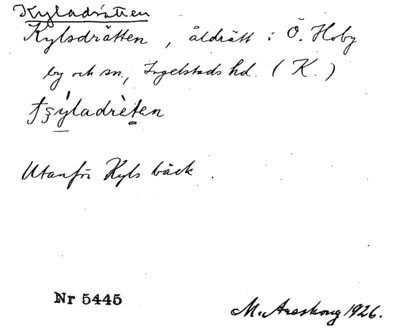 Kyladrätten
Kylsdrätten, åldrätt i Ö. Hoby
by och sn, Ingelstads hd. (K.)
Utanför Kyls bäck.
Nr 5445
M. Areskoug 1926.